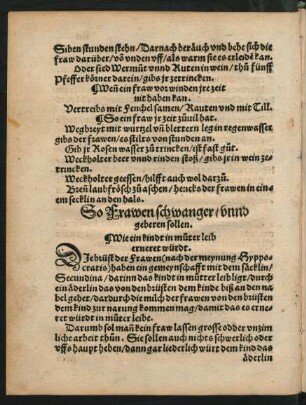 Siben stunden stehn / Darnach beräuch vnd hebe sich die
fraw darüber / võ vnden vff / als warm sie es erleidē kan.
Oder sied Wermůt vnnd Ruten in wein / thů fünff
Pfeffer körner darein / gibs jr zetrincken.
¶ Weñ ein fraw vor winden jre zeit
nit haben kan.
Vertreibs mit Fenchel samen / Rauten vnd mit Till.
¶ So ein fraw jr zeit zůuil hat.
Wegbreyt mit wurtzel vñ blettern leg in regenwasser
gibs der frawen / es stilts von stunden an.
Gib jr Rosen wasser zů trincken / ist fast gůt.
Weckholter beer vnnd rinden stoß / gibs jr in wein ze-
trincken.
Weckholter geessen / hilfft auch wol darzů.
Breñ laubfrösch zů aschen / hencks der frawen in ein-
em secklin an den hals.
So Frawen schwanger / vnnd
geberen sollen.
¶ Wie ein kindt in můter leib
erneret würdt.
Die brüst der Frawen (nach der meynung Hyppo-
cratis) haben ein gemeynschafft mit dem säcklin /
Secundina / darinn das kindt in můtter leib ligt / durch
ein äderlin das von den brüsten dem kinde biß an den na-
bel gehet / dardurch die milch der frawen von den brüsten
dem kind zur narung kommen mag / damit das es erne-
ret würdt in můter leibe.
Darumb sol mañ kein fraw lassen grosse odher vnzim
licht arbeit thůn. Sie sollen auch nichts schwerlich oder
vffs haupt heben / dann gar liederlich würt dem kind das
äderlin